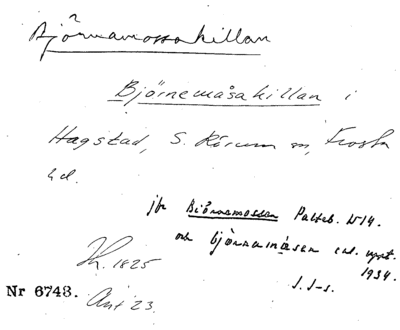 Björnamossakillan
Björnemåsakillan i
Hagstad, S. Rörum sn, Frosta
hd.
jfr Björnamossen Palteb. 1514.
och björnamåsen enl. uppt.
1934.
S. I-s.
Kr. 1825
Nr 6743. Ant 23.